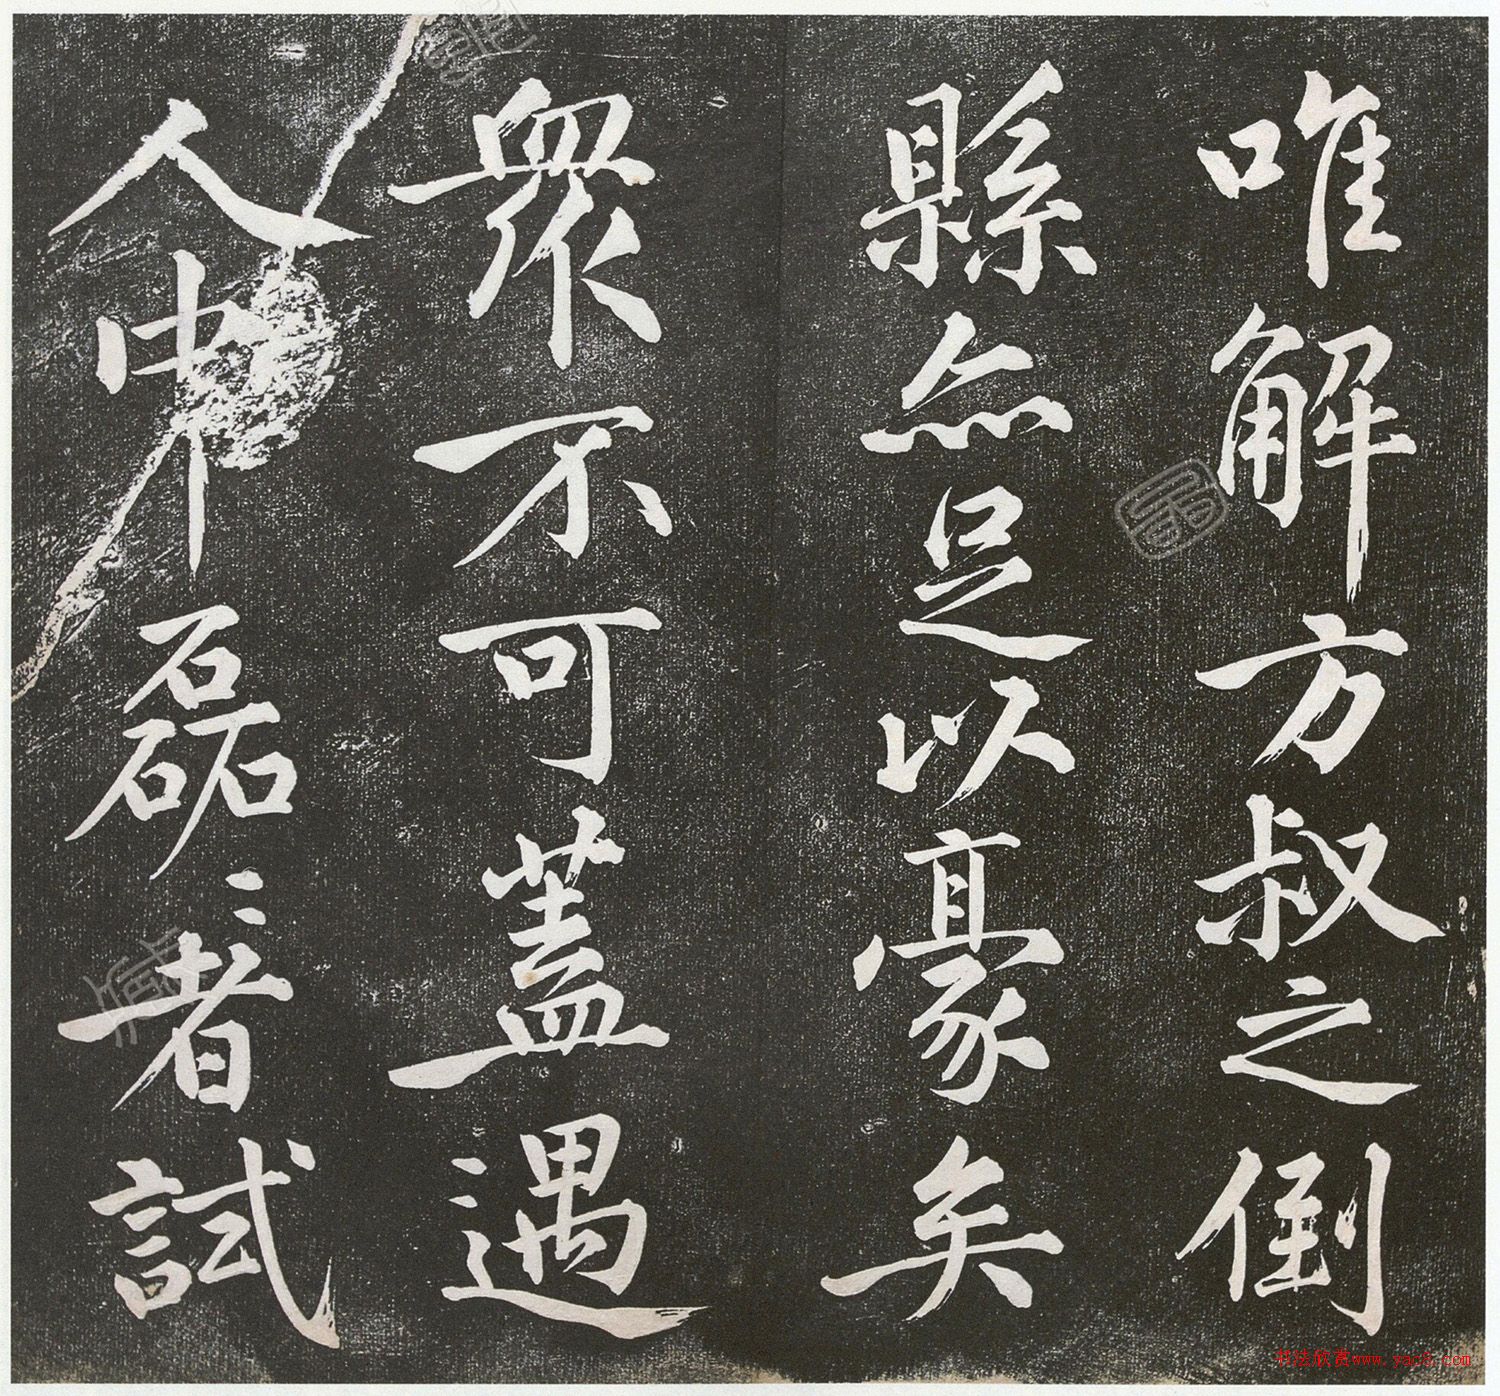 唯解方叔之倒
縣亦足以豪矣
衆不可蓋遇
人中磊〻者試
书法欣赏www.yac8.com